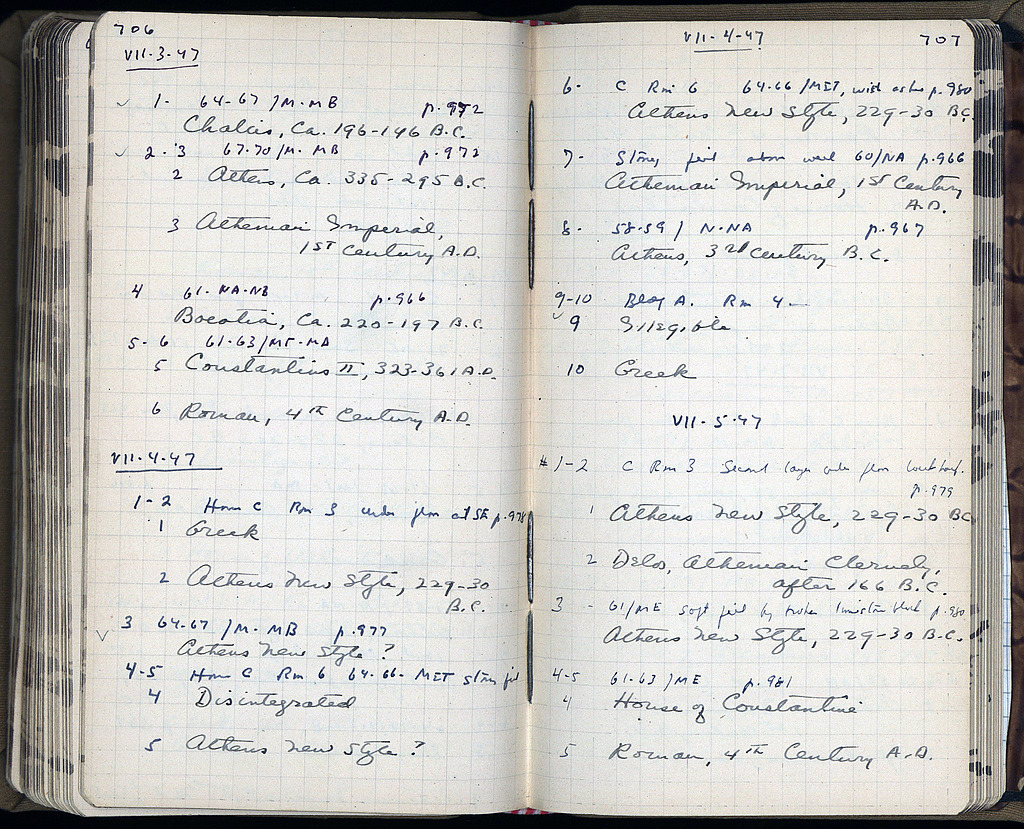 706
VII-3-47
1- 64-67/M-MB p.972
Chalcis, Ca. 196-146 B.C.
2-3 67-70/M-MB p.972
2 Athens, Ca. 335-295 B.C.
3 Athenian Imperial,
1ST Century A.D.
4 61-NA-NB p.966
Boeotia, Ca. 220-197 B.C.
5-6 61-63/MF-MA
5 Constantius II, 323-361 A.D.
6 Roman, 4th Century A.D.
VII-4-47
1-2 House C Rm 3 under floor at SE p.978
1 Greek
2 Athens New Style, 229-30
B.C.
3 64-67/M-MB p.977
Athens New Style?
4-5 House C Rm 6 64-66- MET stony fill
4 Disintegrated
5 Athens New Style?
VII-4-47
707
6- C Rm 6 64-66/MET, with p.980
Athens New Style, 229-30 B.C.
7- Stony fill above well 60/NA p.966
Athenian Imperial, 1st Century
A.D.
8- 58-59/N-NA p.967
Athens, 3rd Century B.C.
9-10 Bldg A. Rm 4-
9 Illegible
10 Greek
VII-5-47
#1-2 C Rm 3 Second layer under floor
p.979
1 Athens New Style, 229-30 BC
2 Delos, Athenian Cleruchy,
after 166 B.C.
3 - 61/ME soft fill by broken limestone block p.980
Athens New Style, 229-30 B.C.
4-5 61-63/ME p.981
4 House of Constantine
5 Roman, 4th Century A.D.